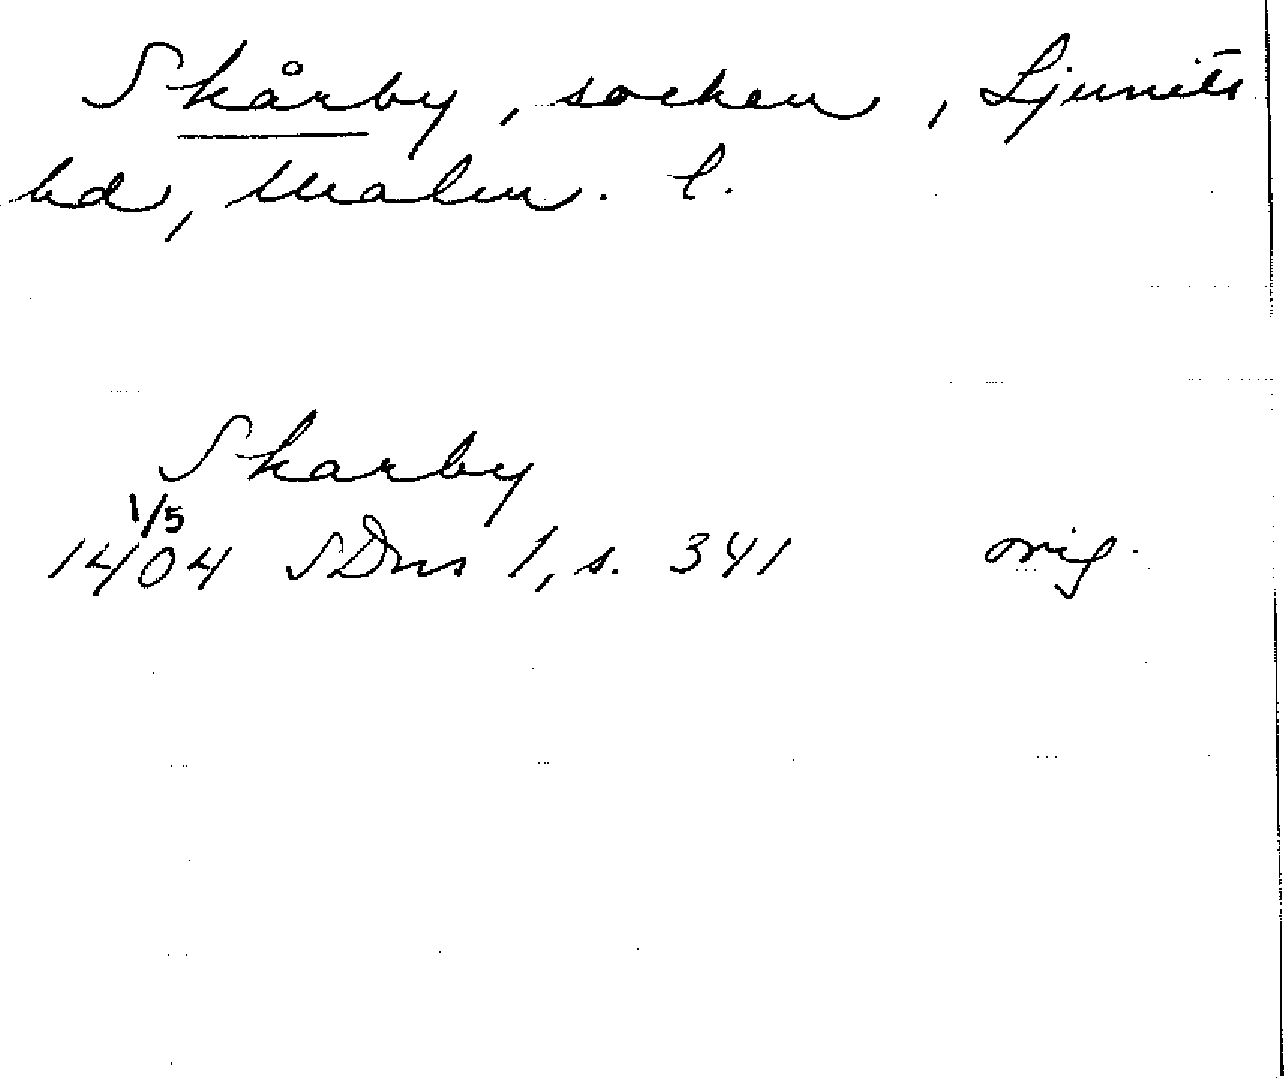 Skårby, socken, Ljunits
hd, Malm. l.
Skarby
1/5
1404 SDns 1, s. 341 orig.